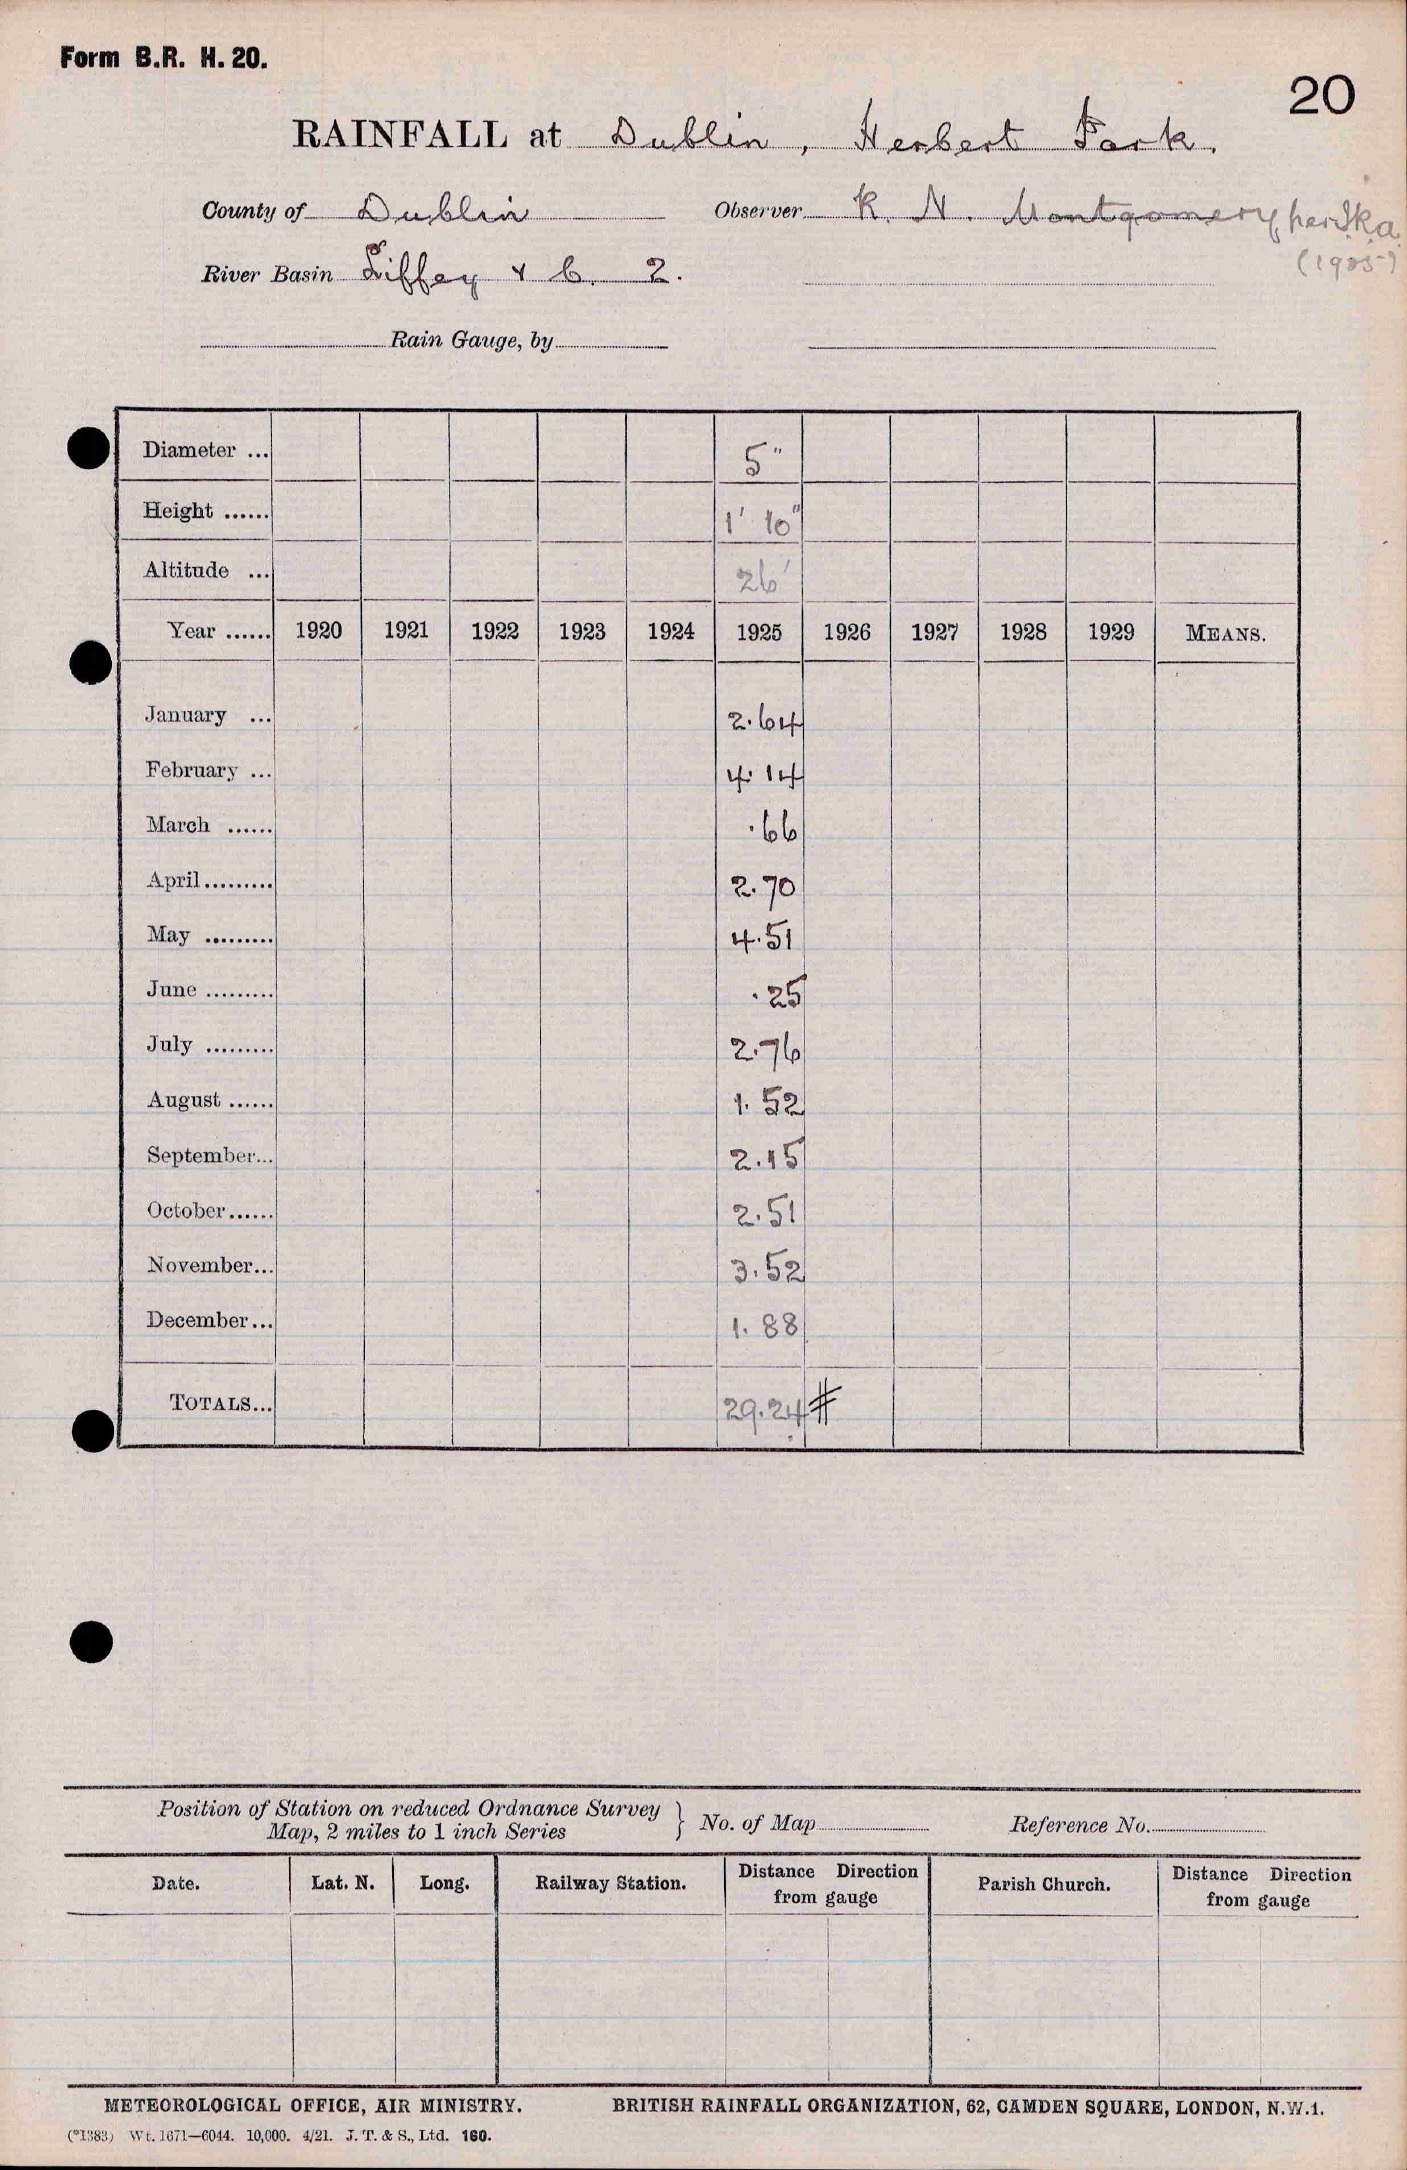 Form B.R. H. 20.
20
RAINFALL at Dublin, Herbert Park.
County of Dublin Observer R. N. Montgomery
(1925)
River Basin Liffey & C. 2.
Rain Gauge, by
Diameter ... 5"
Height ...... 1' 10"
Altitude ... 26'
Year ...... 1920 1921 1922 1923 1924 1925 1926 1927 1928 1929 MEANS.
January ... 2.64
February ... 4.14
March ...... .66
April ......... 2.70
May ......... 4.51
June ......... .25
July ......... 2.76
August ...... 1.52
September... 2.15
October ...... 2.51
November... 3.52
December... 1.88
TOTALS... 29.24 #
Position of Station on reduced Ordnance Survey
Map, 2 miles to 1 inch Series } No. of Map Reference No.
Date. Lat. N. Long. Railway Station. Distance Direction from gauge Parish Church. Distance Direction from gauge
METEOROLOGICAL OFFICE, AIR MINISTRY. BRITISH RAINFALL ORGANIZATION, 62, CAMDEN SQUARE, LONDON, N.W.1.
(*1383) Wt. 1671—6044. 10,000. 4/21. J. T. & S., Ltd. 160.